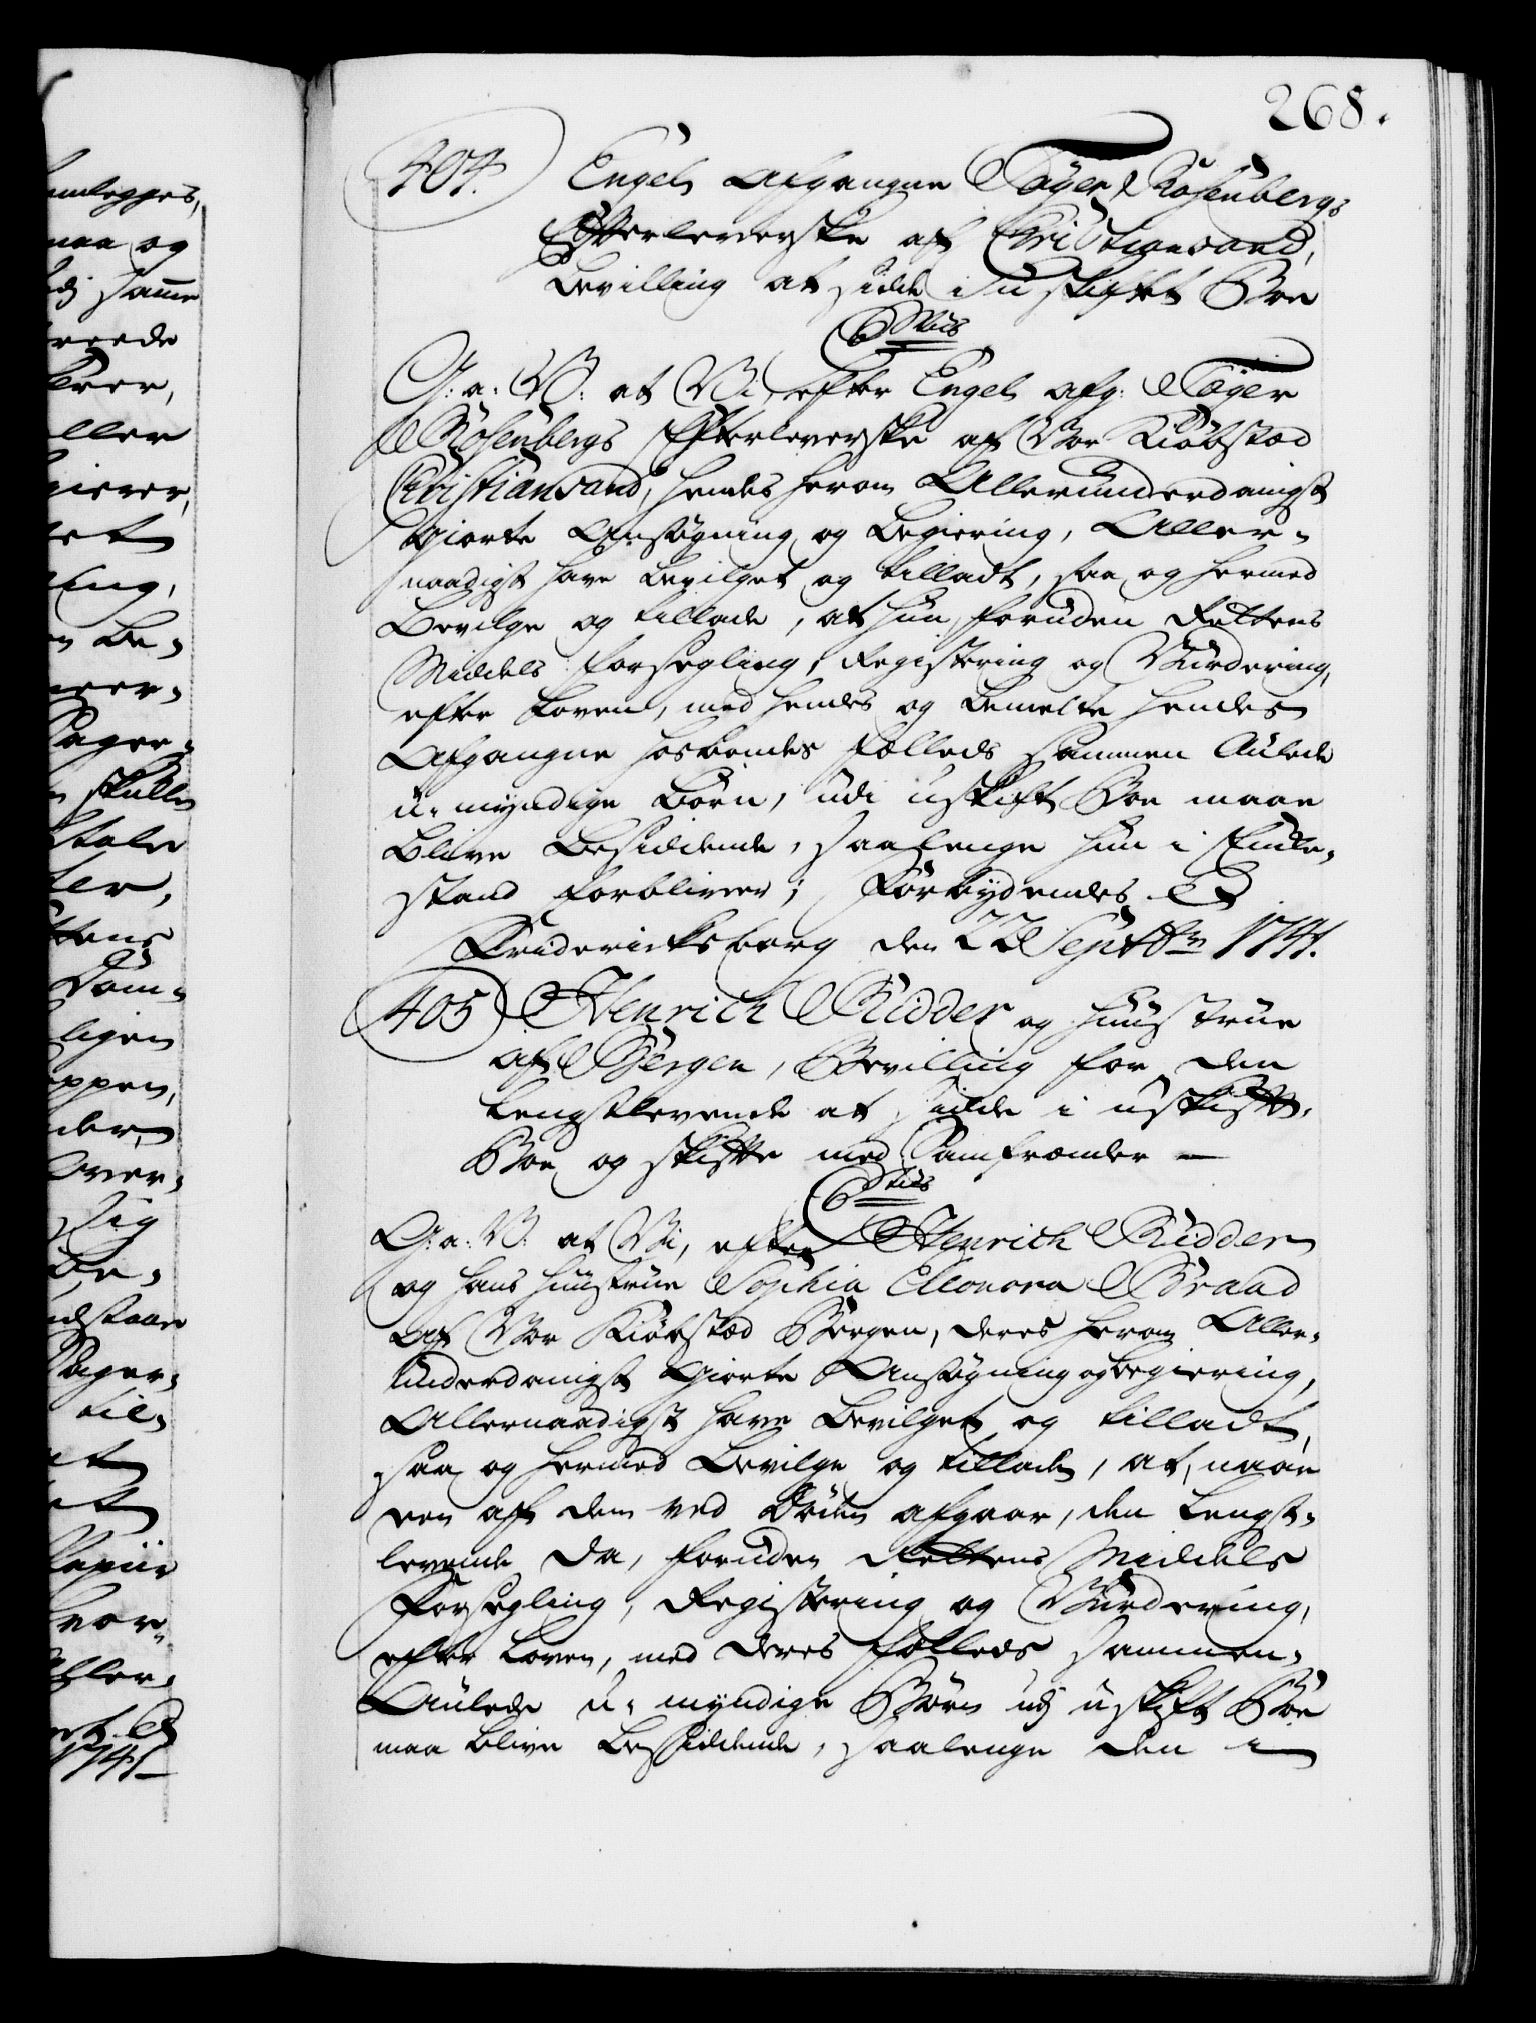 268.
404.
Engel Afgangne Tøger Rosenbergs
Efterleverske af Christiansand,
Bevilling at sidde i uskiftet Boe
G: a: V: at Vi, efter Engel afg: Tøger
Rosenbergs Efterleverske af Vor Kiøbstæd
Christiansand, hendes herom Allerunderdanigst
giorte Ansøgning og Begiering, Aller-
naadigst have bevilget og tilladt, saa og hermed
Bevilge og tillade, at hun, foruden Rettens
Middels Forsegling, Registering og Vurdering,
efter Loven, med hendes og bemelte hendes
Afgangne Hosbondes fælleds sammen Aulede
u-myndige Børn, udi uskift Boe maae
blive Besiddende, saalenge hun i Enke-
stand forbliver; Forbydendes
Friderichsborg den 22 Septbr 1741.
405
Henrich Ridder og Huustrue
af Bergen, Bevilling for den
Lengstlevende at sidde i uskifte
Boe og skifte med Samfrænder —
G: a: V: at Vi, efter Henrich Ridder
og hans Huustrue Sophia Elleonora Braad
Af Vor Kiøbstæd Bergen, deres herom Aller-
underdanigst giorte Ansøgning og begiering,
Allernaadigst have bevilget og tilladt,
saa og hermed Bevilge og tillade, at, naar
een af dem ved Døden afgaar, den Lengst-
levende da, foruden Rettens Middels
Forsegling, Registering og Vurdering,
efter Loven, med deres fælleds sammen-
Aulede u-myndige Børn udj uskift Boe
maa blive Besiddende, saalenge den i